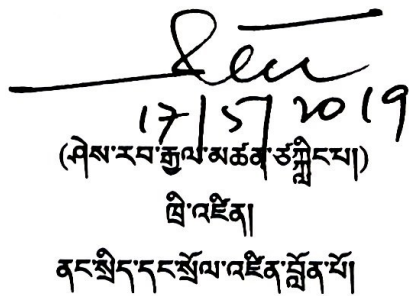 17/5/2019
(ཤེས་རབ་རྒྱལ་མཚན་ཙཀླིང་པ།)
ཁྲི་འཛིན།
ནང་སྲིད་དང་སྲོལ་འཛིན་བློན་པོ།